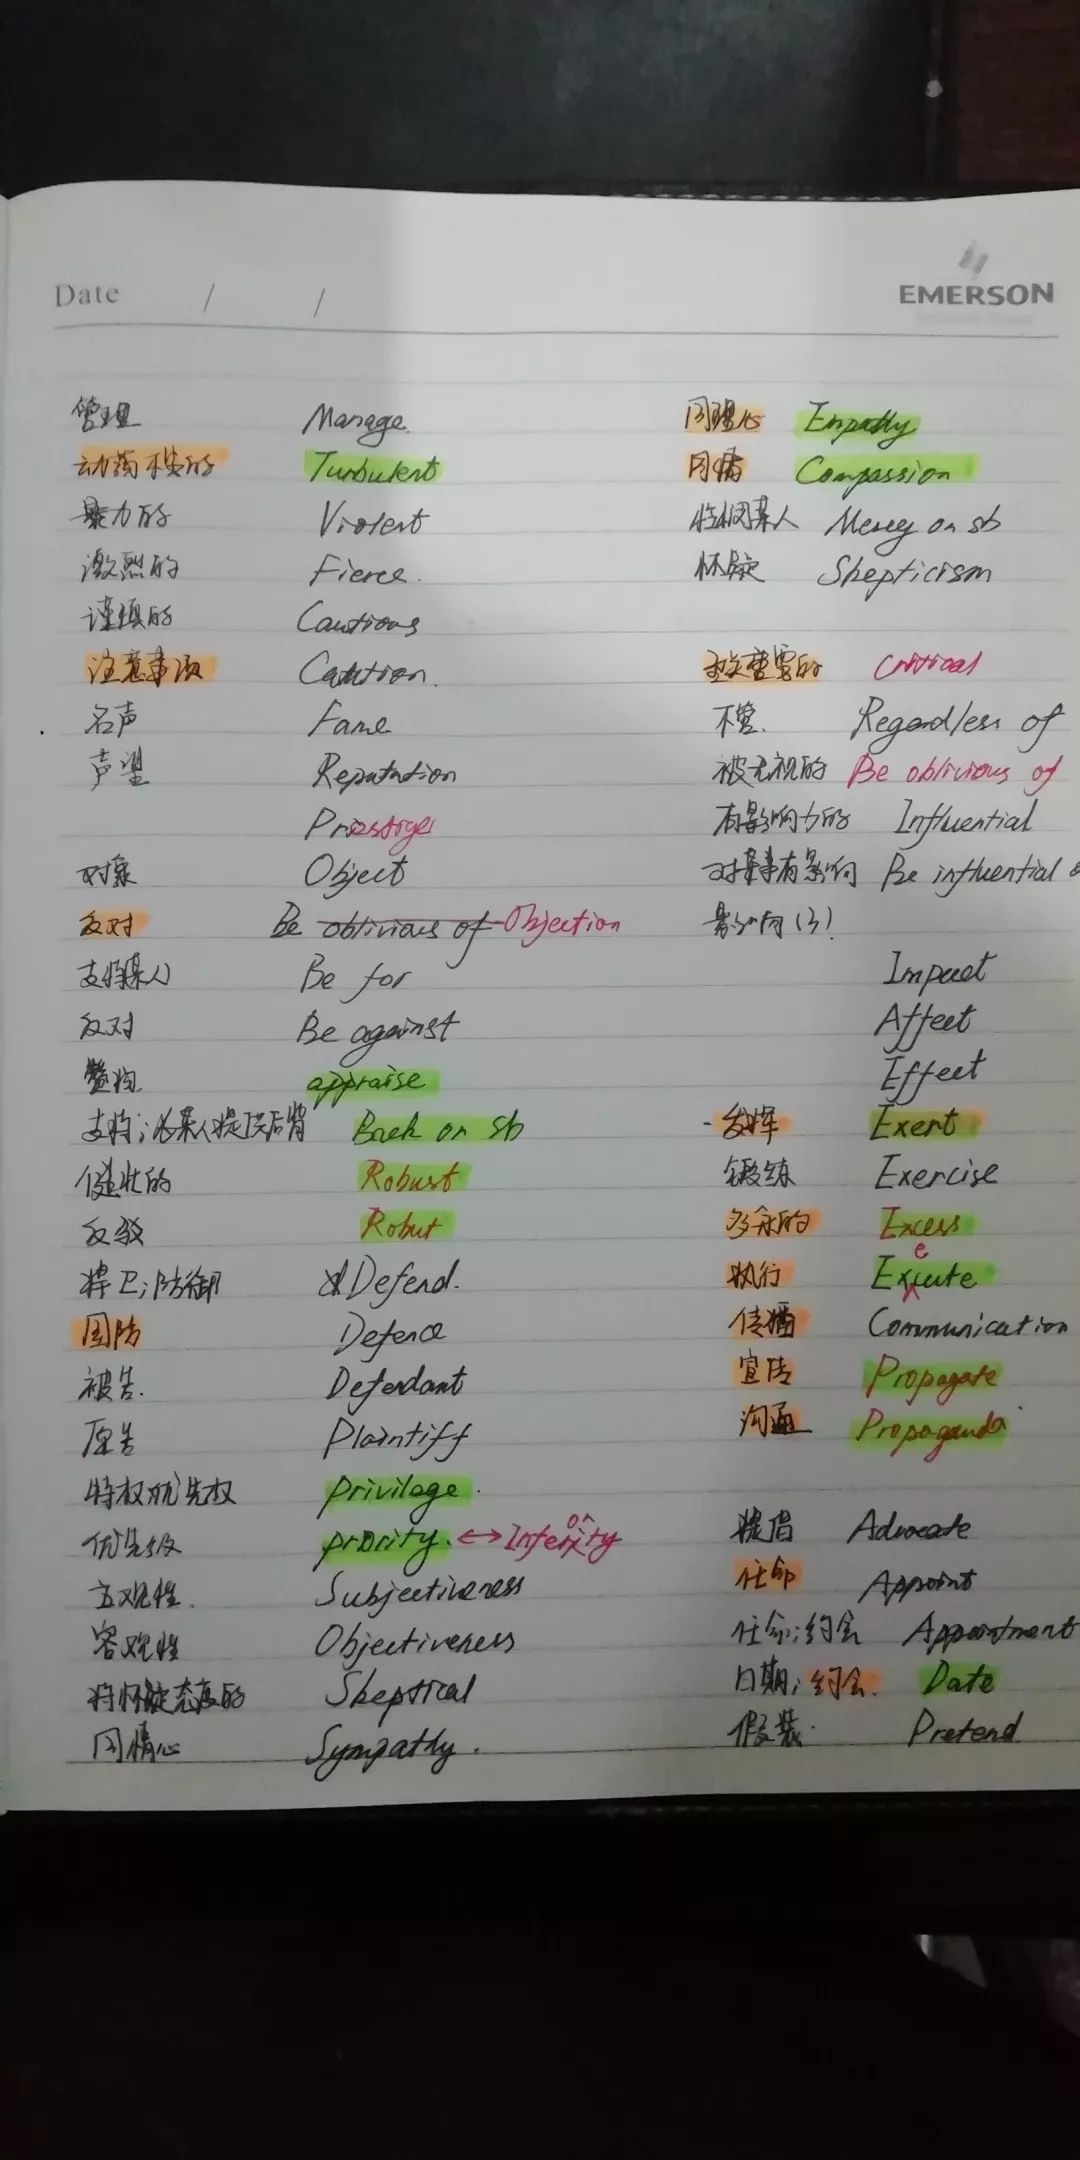 Date / /
EMERSON
管理 Manage
动荡不安的 Turbulent
暴力的 Violent
激烈的 Fierce.
谨慎的 Cautious
注意事项 Caution.
名声 Fame
声望 Reputation
Prestige
对象 Object
反对 Be oblivious of Objection
支持某人 Be for
反对 Be against
赞扬 appraise
支持；为某人提供后背 Back on sb
健壮的 Robust
反驳 Robut
捍卫；防御 Defend.
国防 Defence
被告. Defendant
原告 Plaintiff
特权优先权 privilage.
优先级 priority. ↔ Inferiority
主观性. Subjectiveness
客观性 Objectiveness
持怀疑态度的 Skeptical
同情心 Sympathy.
同理心 Empathy
同情 Compassion
怜悯某人 Mercy on sb
怀疑 Skepticism
至关重要的 Critical
不管. Regardless of
被无视的 Be oblivious of
有影响力的 Influential
对某事有影响 Be influential
影响(3)
Impact
Affect
Effect
发挥 Exert
锻练 Exercise
多余的 Excess
执行 Execute
传播 Communication
宣传 Propagate
沟通 Propaganda
提倡 Advocate
任命 Appoint
任命；约会 Appointment
日期；约会. Date
假装. Pretend